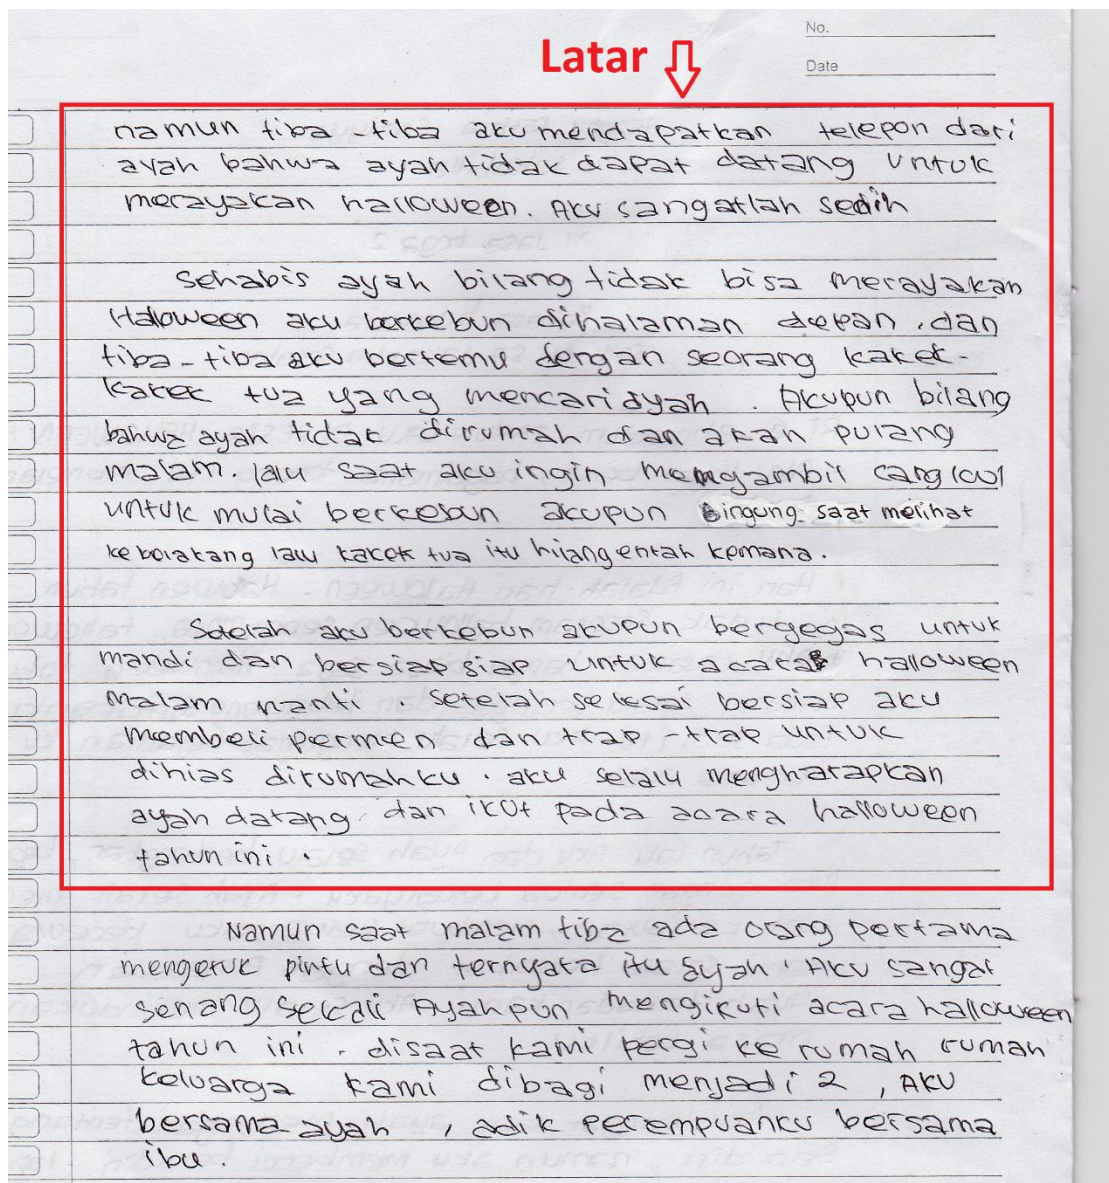 No.
Latar
Date
namun tiba tiba aku mendapatkan telepon dari
ayah bahwa ayah tidak dapat datang untuk
merayakan halloween. Aku sangatlah sedih
Sehabis ayah bilang tidak bisa merayakan
Haloween aku berkebun dihalaman depan, dan
tiba-tiba aku bertemu dengan seorang kakek-
kakek tua yang mencari ayah. Akupun bilang
bahwa ayah tidak dirumah dan akan pulang
malam. lalu saat aku ingin mengambil cangkul
untuk mulai berkebun akupun bingung saat melihat
kebelakang lalu kakek tua itu hilang entah kemana.
Setelah aku berkebun akupun bergegas untuk
mandi dan bersiap siap untuk acara halloween
malam nanti. setelah selesai bersiap aku
membeli permen dan trap-trap untuk
dihias dirumahku. aku selalu mengharapkan
ayah datang dan ikut pada acara halloween
tahun ini.
Namun saat malam tiba ada orang pertama
mengetuk pintu dan ternyata itu ayah Aku sangat
senang sekali Ayahpun mengikuti acara halloween
tahun ini. disaat kami pergi ke rumah rumah
keluarga kami dibagi menjadi 2, Aku
bersama ayah, adik perempuanku bersama
ibu.